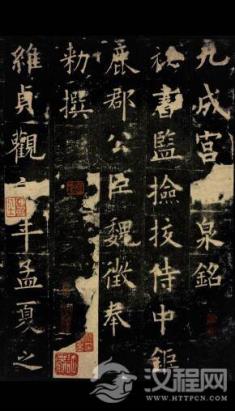 九成宮 泉銘
秘書監撿挍侍中鉅
鹿郡公臣魏徵奉
勑撰
維貞觀 年孟夏之
汉程网
HTTPCN.COM